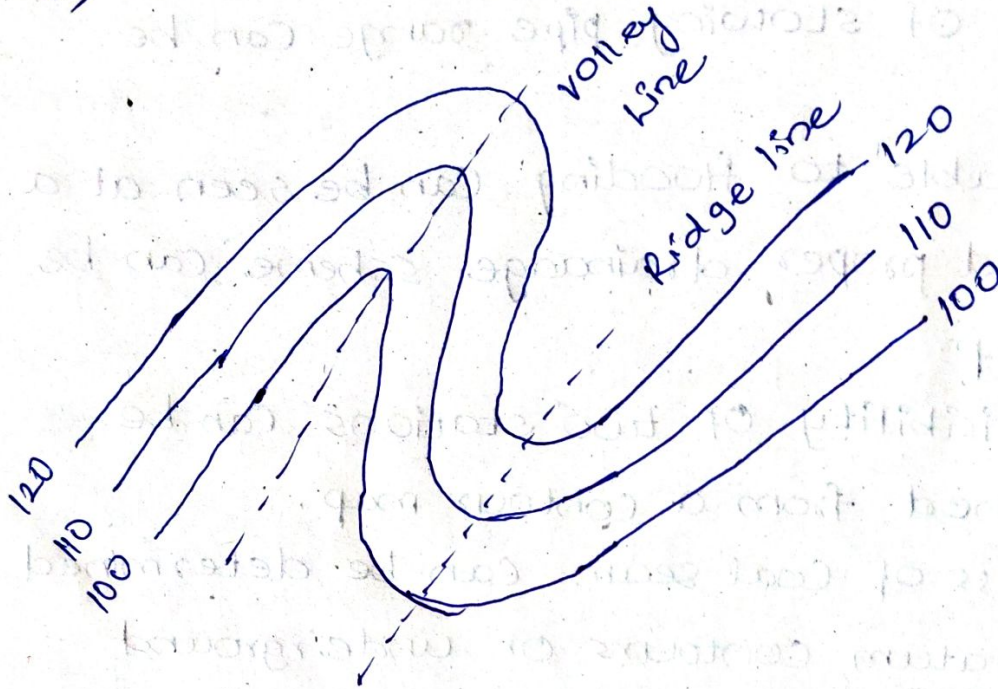 Volley
Line
Ridge line
120
110
100
120
110
100